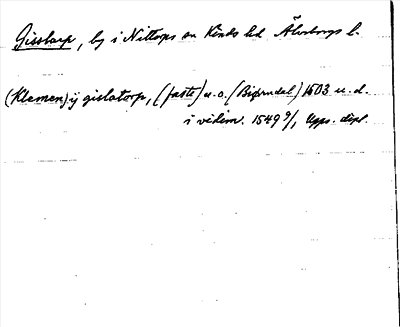 Gisstarp, by i Nittorps sn Kinds hd Älvsborgs l.
(Klemen) ij gislatorp, (faste) u.o. (Biærndal) 1503 u.d.
i vidim. 1549 9/1, Upps. dipl.